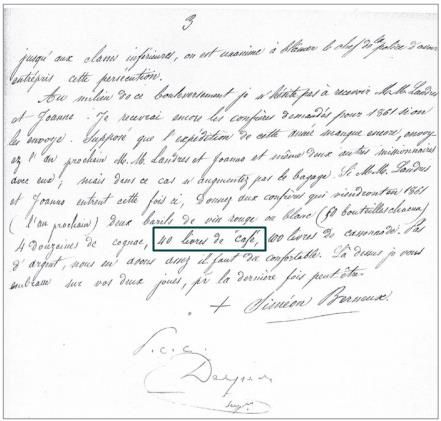 3
jusqu'aux classes inférieures, on est unanime à blâmer le chef de la police d'avoir
entrepris cette persécution.
Au milieu de ce bouleversement je n'hésite pas à recevoir M.M. Landres
et Joanno. Je recevrai encore les confrères demandés pour 1861 si on
les envoye. Supposé que l'expédition de cette année manque encore, envoy
ez l'an prochain M.M. Landres et Joanno et même deux autres missionnaires
avec eux; mais dans ce cas n'augmentez pas le bagage. Si M.M. Landres
et Joanno entrent cette fois ci, donnez aux confrères qui viendront en 1861
(l'an prochain) deux barils de vin rouge ou blanc (50 bouteilles chacun)
4 douzaines de cognac, 40 livres de "café", 100 livres de cassonade. Pas
d'argent, nous en avons assez il faut du confortable. Là dessus je vous
embrasse sur vos deux joues, pr la dernière fois peut être.
+ Siméon Berneux.
P.C.C.